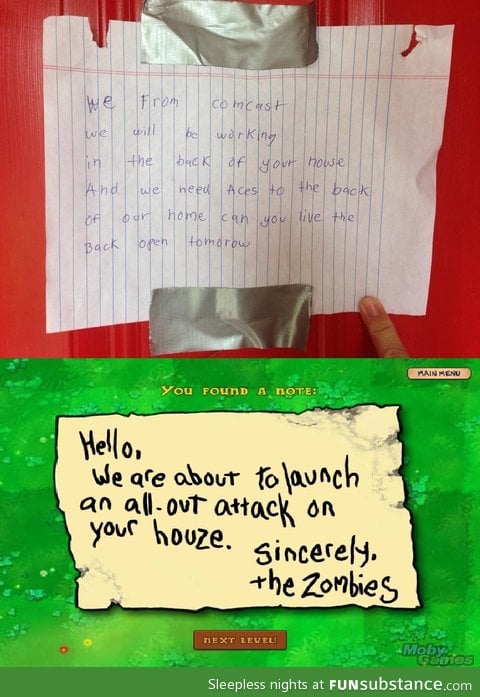 We From comcast
we will be working
in the back of your house
And we need Aces to the back
of our home can you live the
Back open tomorow
MAIN MENU
YOU FOUND A NOTE:
Hello,
We are about to launch
an all-out attack on
your houze.
Sincerely,
the Zombies
NEXT LEVEL!
Moby
Games
Sleepless nights at FUNsubstance.com